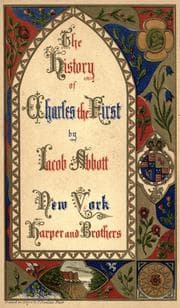 The
History
of
Charles the First
by
Jacob Abbott
New York
Harper and Brothers